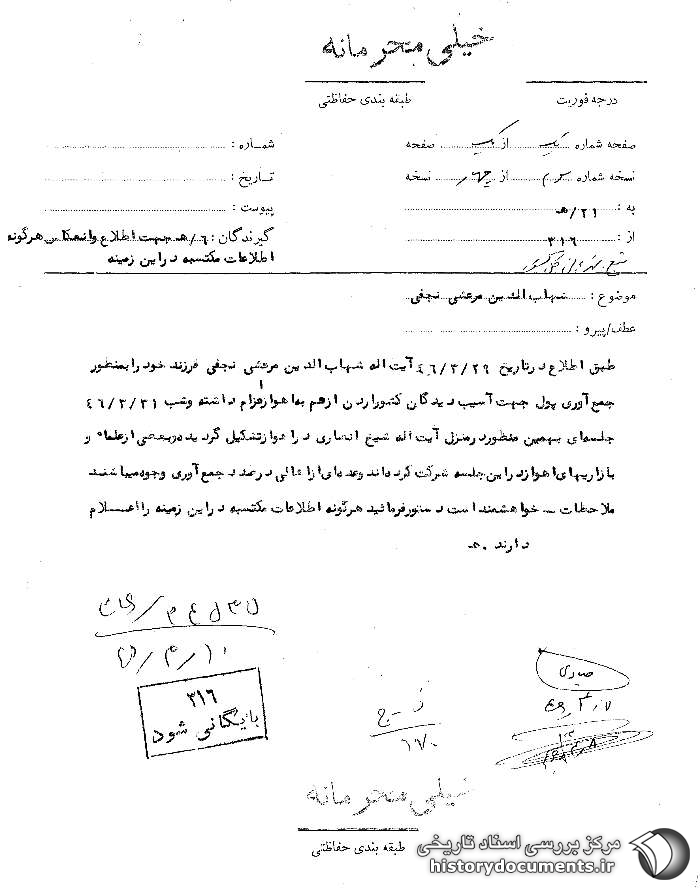 خیلی محرمانه
درجه فوریت
طبقه بندی حفاظتی
صفحه شماره یک از یک صفحه
شماره :
نسخه شماره از چهار نسخه
تاریخ :
به : ۲۱/هـ
پیوست :
از : ۳۱۶
گیرندگان : ۶/هـ جهت اطلاع وانعکاس هرگونه
اطلاعات مکتسبه دراین زمینه
موضوع : شهاب الدین مرعشی نجفی
عطف/پیرو :
طبق اطلاع درتاریخ ۴۶/۳/۲۹ آیت اله شهاب الدین مرعشی نجفی فرزند خود رابمنظور
جمع آوری پول جهت آسیب دیدگان کشوراردن ازقم به اهوازاعزام داشته وشب ۴۶/۳/۳۱
جلسه‌ای بهمین منظوردرمنزل آیت اله شیخ انصاری در اهوازتشکیل گردیده وبعضی ازعلماء و
بازاریهای اهوازدراین جلسه شرکت کرده‌اند وعده‌ای ازاهالی درصدد جمع آوری وجوه میباشند
ملاحظات ـ خواهشمند است دستورفرمائید هرگونه اطلاعات مکتسبه دراین زمینه رااعلام
دارند . هـ
۱۰/۴/
۳۱۶
بایگانی شود
صیدی
۴۶٫۴٫۷
ز-ج
۱۷۰
خیلی محرمانه
طبقه بندی حفاظتی
مرکز بررسی اسناد تاریخی
historydocuments.ir